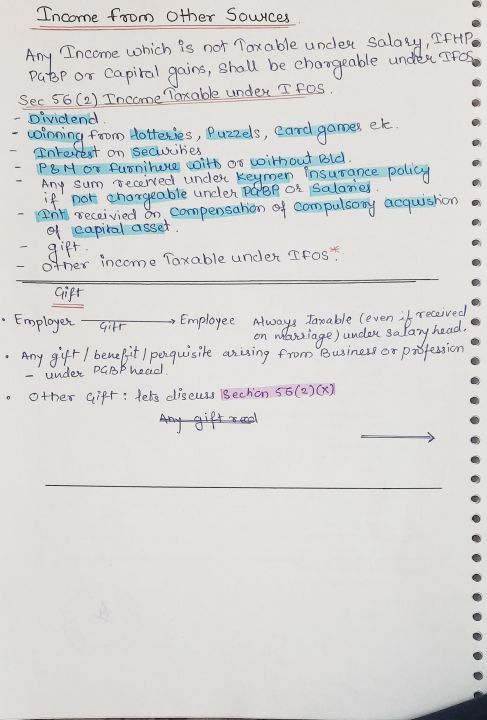 Income from Other Sources
Any Income which is not Taxable under Salary, IFHP
PGBP or Capital gains, shall be chargeable under IFOS
Sec 56(2) Income Taxable under IFOS.
- Dividend.
- Winning from lotteries, Puzzels, Card games etc.
- Interest on Securities
- P&M or furniture with or without Bld.
- Any sum received under Keymen insurance policy
if not chargeable under PGBP or Salaries.
- Int receivied on Compensation of Compulsory acquistion
of Capital asset.
- gift.
- Other income Taxable under IFOS*.
Gift
• Employer Gift → Employee Always Taxable (even if received
on marriage) under salary head.
• Any gift / benefit / perquisite arising from Business or profession
- under PGBP head.
• Other Gift : lets discuss Section 56(2)(x)
Any gift recd
→